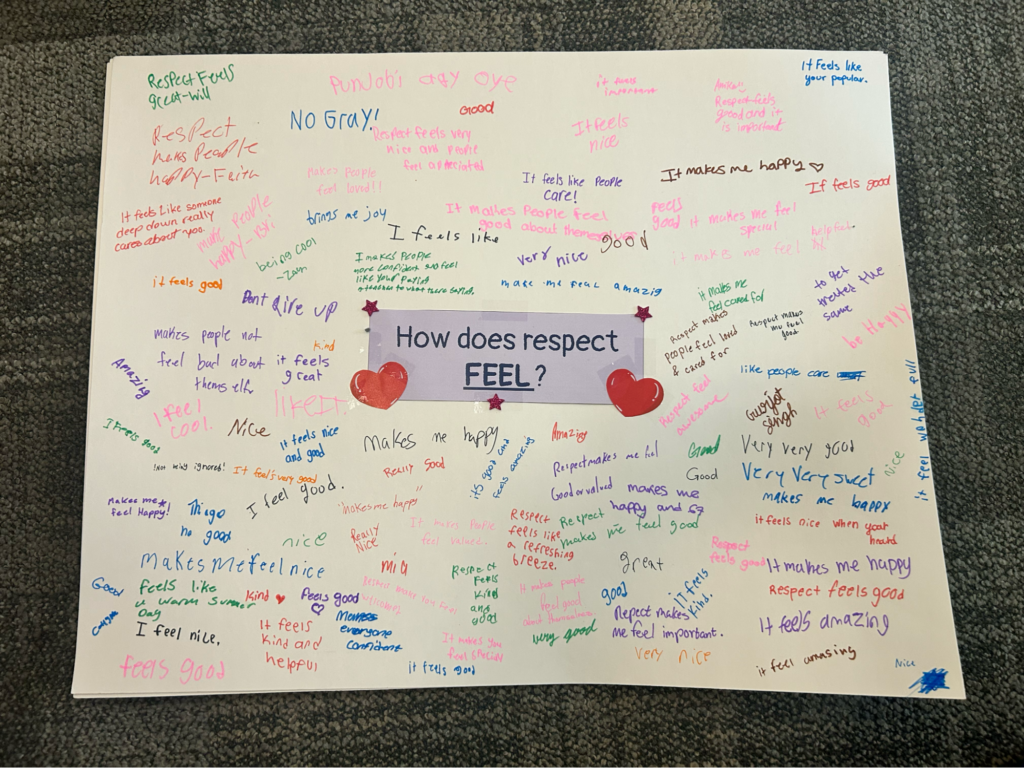 Respect Feels
great-Will
Punjabi agy oye
it feels
important
Respect feels
good and it
is important
It Feels like
your popular.
NO GRAY!
Good
Respect
makes People
happy-Faith
Respect feels very
nice and people
feel appreciated
It feels
nice
makes People
feel loved!!
It feels like People
care!
It makes me happy
If feels good
It feels Like someone
deep down really
cares about you.
make people
happy
brings me joy
It makes People feel
good about themselves
feels
good
it makes me feel
special
helpful
I feels like
good
being cool
very nice
I makes People
more confident and feel
it makes me feel
it feels good
Dont give up
make me feal amazig
it makes me
feel cared for
to get
treated the
same
How does respect
FEEL?
Respect makes
people feel loved
& cared for
Respect makes
me feel
good
be Happy
makes people not
feel bad about
themself
kind
it feels
great
Amazing
like people care
I feel
cool.
like It.
Respect feel
awesome
Gurjot
singh
It feels
good
I Feels good
Nice
It feels nice
and good
makes me happy
Amazing
Good
Very very good
Nice
!Not being ignored!
It feel's very good
Really Good
its good and
feels amazing
Respect makes me feel
Good or valued
Good
Very Very sweet
makes me
feel Happy!
I feel good.
"makes me happy"
makes me
happy and
makes me bappy
Thigo
no good
nice
Really
Nice
It makes People
feel valued.
Respect
feels like
a refreshing
breeze.
Respect
makes me feel good
it feels nice when your
heard
makes me feel nice
mia
Respect
Feels
kind
and
good
great
Respect
feels good
It makes me happy
Good
Feels like
a warm summer
Day
kind
Feels good
It makes people
feel good
about themselves
good
it feels
kind.
Respect feels good
I feel nice.
It feels
kind and
helpful
Makes
everyone
confident
It makes you
feel special
very good
Repect makes
me feel important.
It feels amazing
feels good
it feels good
very nice
it feel amasing
Nice